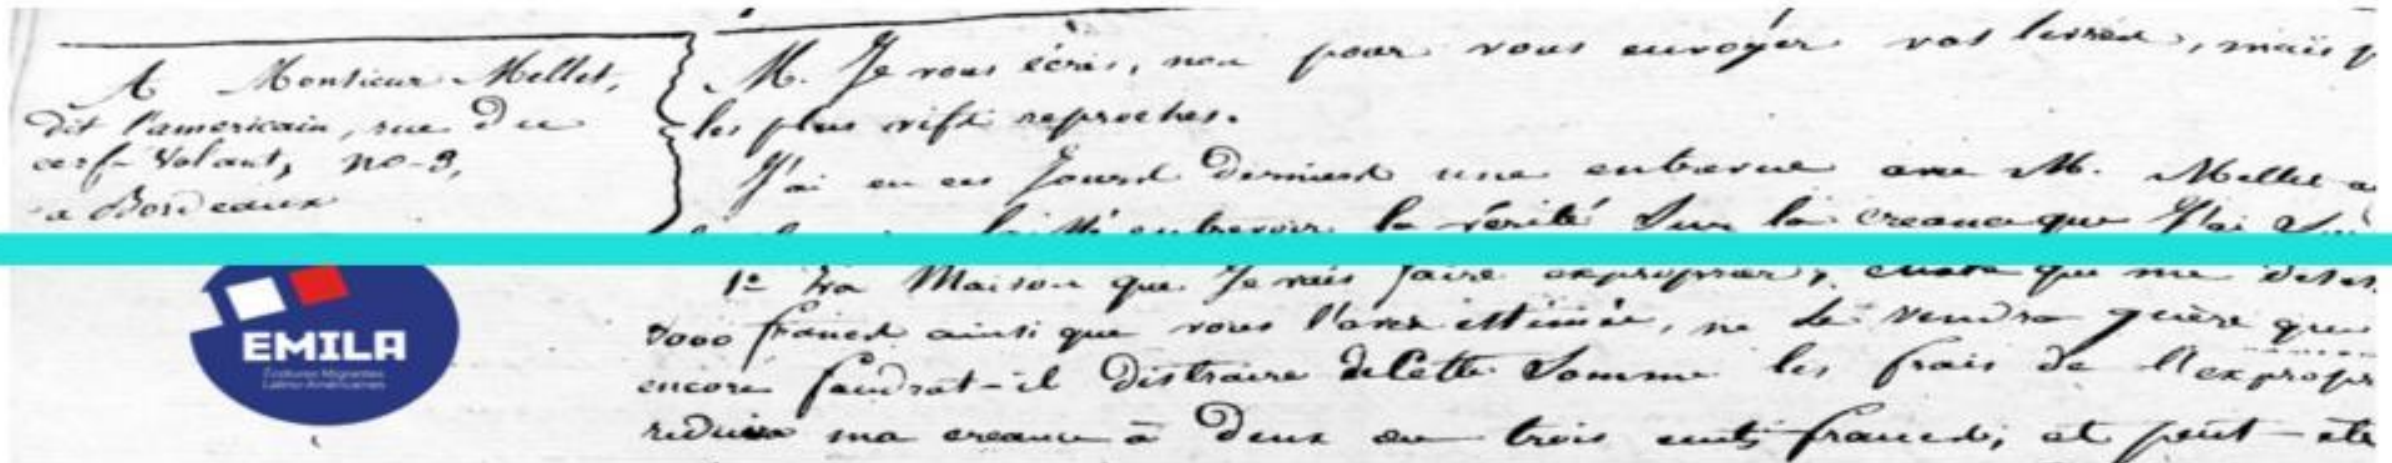 A Monsieur Mellet,
dit l'americain, rue du
cerf-Volant, no-3,
a Bordeaux
M. Je vous écris, non pour vous envoyer vos livres, mais p
les plus vifs reproches.
J'ai eu ces jours derniers une entrevue avec M. Mellet a
laissé entrevoir la vérité sur la creance que j'ai
1º La Maison que je vais faire exproprier, que me
francs ainsi que vous l'avez estimée, ne se vendra guère que
encore faudrat-il distraire de cette somme les frais de l'expropr
reduira ma creance à deux ou trois cents francs, et peut-etre
EMILA
Écritures Migrantes
Latino-Américaines